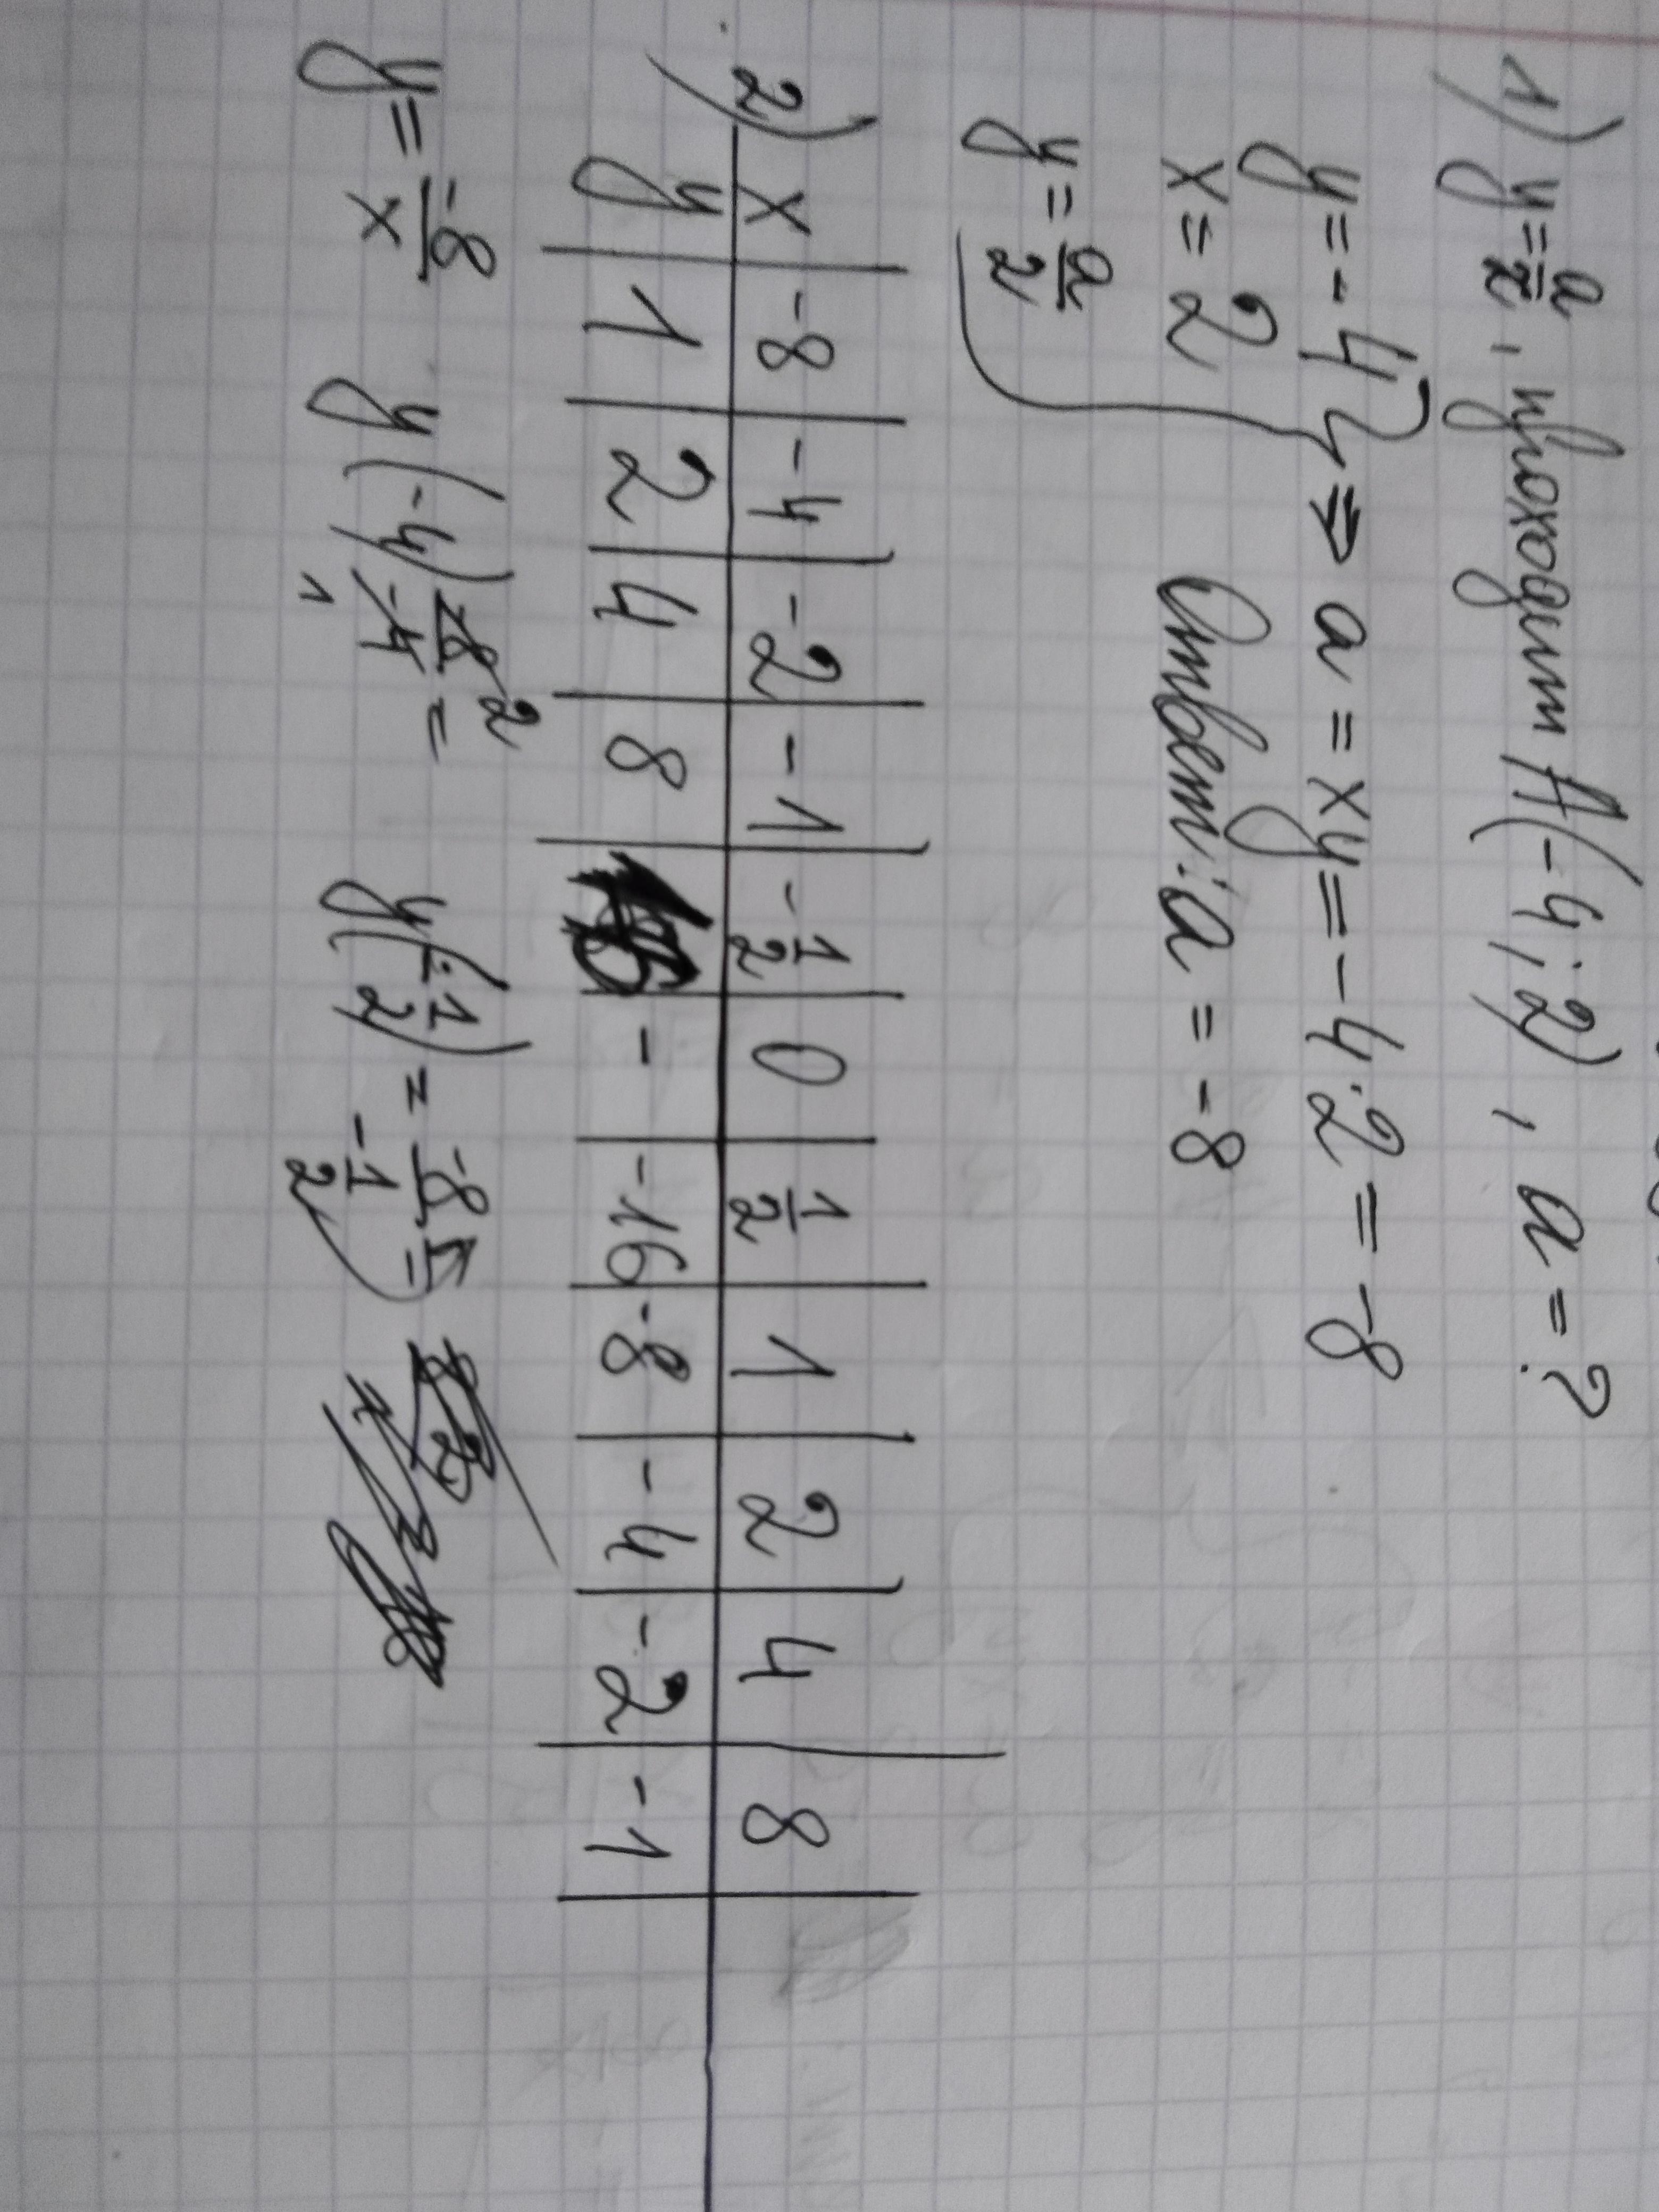 1) y = a/x, проходит А(-4; 2), a = ?
y = -4
x = 2 } ⇒ a = xy = -4·2 = -8
y = a/2 Ответ: a = -8
2) x | -8 | -4 | -2 | -1 | -1/2 | 0 | 1/2 | 1 | 2 | 4 | 8
y | 1 | 2 | 4 | 8 | 16 | - | -16 | -8 | -4 | -2 | -1
y = -8/x y(-4) -8/-4 = 2 1 y(-1/2) = -8/-1/2